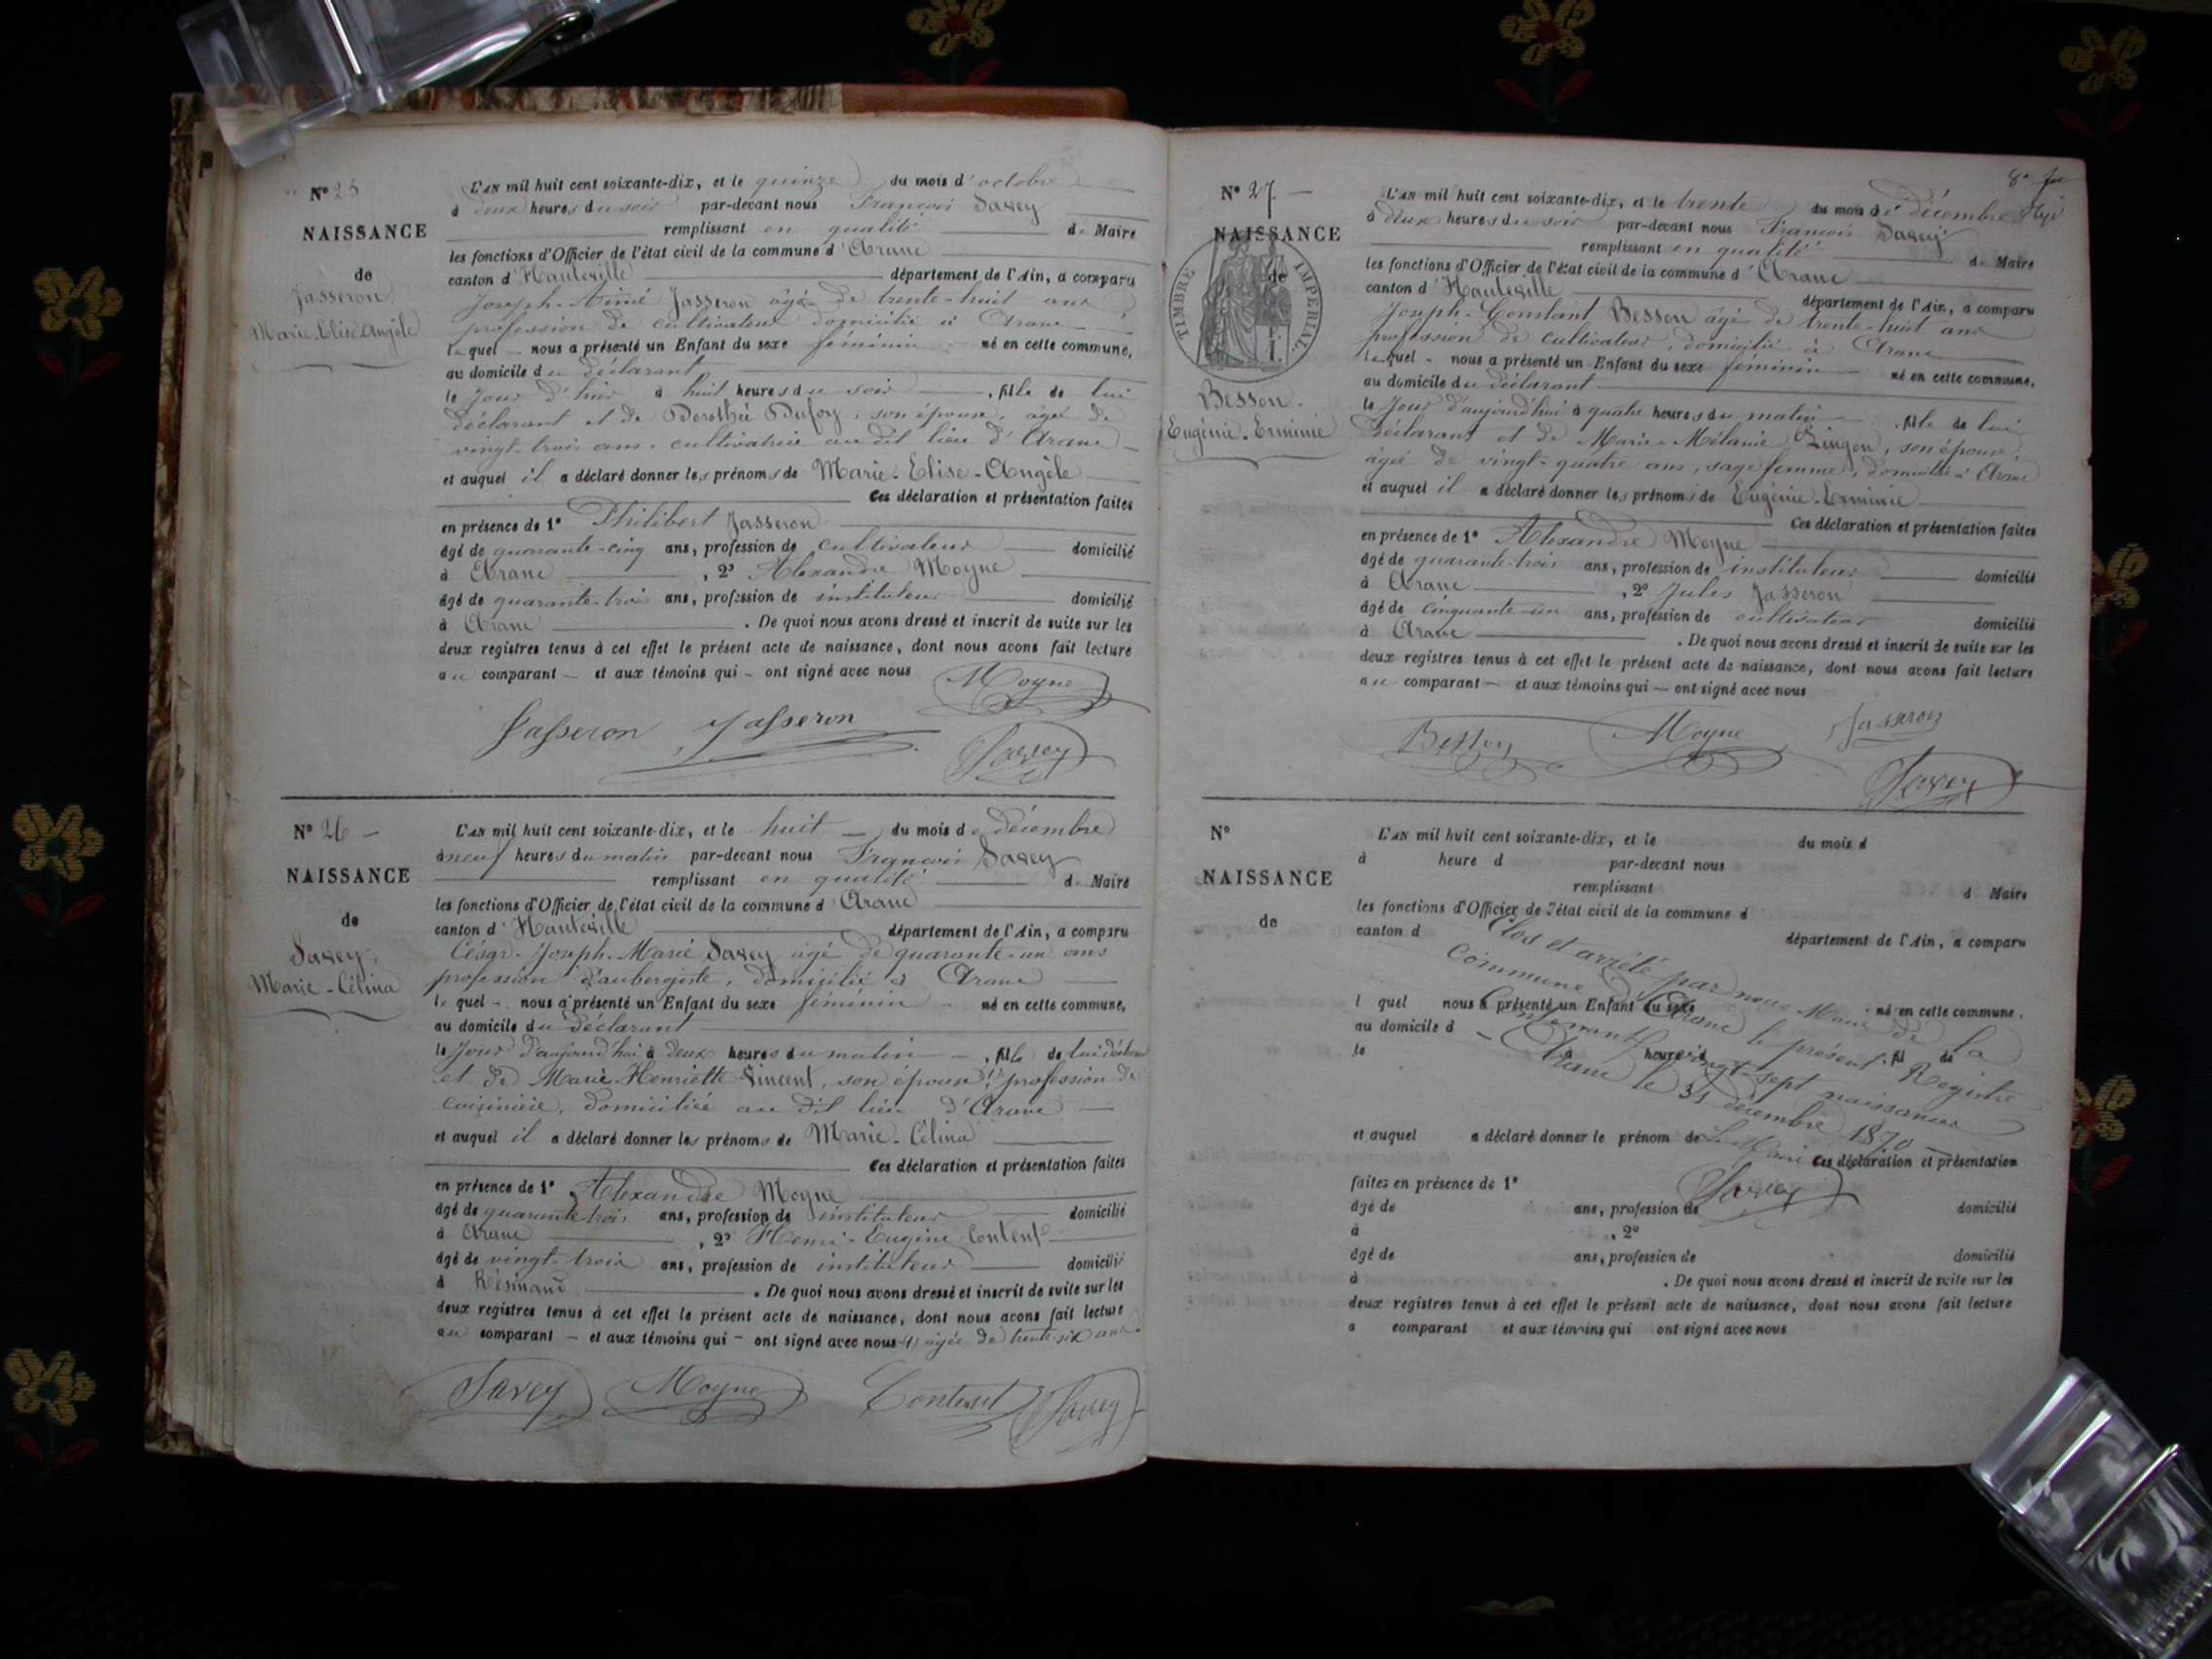 N° 25
NAISSANCE
de
Jasseron
Marie-Elise-Angèle
L'AN mil huit cent soixante-dix, et le quinze du mois d'octobre
à deux heures du soir par-devant nous François Savey
remplissant en qualité de Maire
les fonctions d'Officier de l'état civil de la commune d'Aranc
canton d'Hauteville département de l'Ain, a comparu
Joseph-Aimé Jasseron âgé de trente-huit ans
profession de cultivateur domicilié à Aranc
lequel nous a présenté un Enfant du sexe féminin né en cette commune,
au domicile du déclarant
le jour d'hier à huit heures du soir, fille de lui
déclarant et de Dorothée Dufoy, son épouse, âgée de
vingt-trois ans, cultivatrice au dit lieu d'Aranc
et auquel il a déclaré donner les prénoms de Marie-Elise-Angèle
Ces déclaration et présentation faites
en présence de 1° Philibert Jasseron
âgé de quarante-cinq ans, profession de cultivateur domicilié
à Aranc, 2° Alexandre Moyne
âgé de quarante-trois ans, profession de instituteur domicilié
à Aranc. De quoi nous avons dressé et inscrit de suite sur les
deux registres tenus à cet effet le présent acte de naissance, dont nous avons fait lecture
au comparant — et aux témoins qui — ont signé avec nous
Moyne
Jasseron Jasseron
Savey
N° 26 —
NAISSANCE
de
Savey,
Marie-Célina
L'AN mil huit cent soixante-dix, et le huit — du mois de décembre
à neuf heures du matin par-devant nous François Savey
remplissant en qualité de Maire
les fonctions d'Officier de l'état civil de la commune d Aranc
canton d'Hauteville département de l'Ain, a comparu
César-Joseph-Marie Savey âgé de quarante-un ans
profession d'aubergiste, domicilié à Aranc
lequel — nous a présenté un Enfant du sexe féminin né en cette commune,
au domicile du déclarant
le jour d'aujourd'hui à deux heures du matin —, fille de lui
et de Marie-Henriette Vincent, son épouse (1), profession de
cuisinière, domiciliée au dit lieu d'Aranc
et auquel il a déclaré donner les prénoms de Marie-Célina
Ces déclaration et présentation faites
en présence de 1° Alexandre Moyne
âgé de quarante-trois ans, profession de instituteur domicilié
à Aranc, 2° Henri-Eugène Contenf
âgé de vingt-trois ans, profession de instituteur domicilié
à Résinand. De quoi nous avons dressé et inscrit de suite sur les
deux registres tenus à cet effet le présent acte de naissance, dont nous avons fait lecture
au comparant — et aux témoins qui — ont signé avec nous (1) âgée de trente-six ans
Savey Moyne Savey
N° 27 —
NAISSANCE
de
TIMBRE IMPERIAL
1 F.
Besson.
Eugénie-Erminie
L'AN mil huit cent soixante-dix, et le trente du mois de décembre
à deux heures du soir par-devant nous François Savey
remplissant en qualité de Maire
les fonctions d'Officier de l'état civil de la commune d'Aranc
canton d'Hauteville département de l'Ain, a comparu
Joseph-Constant Besson âgé de trente-huit ans
profession de cultivateur, domicilié à Aranc
lequel — nous a présenté un Enfant du sexe féminin né en cette commune,
au domicile du déclarant
le jour d'aujourd'hui à quatre heures du matin, fille de lui
déclarant et de Marie-Mélanie, son épouse,
âgée de vingt-quatre ans, sage femme, domiciliée à Aranc
et auquel il a déclaré donner les prénoms de Eugénie-Erminie
Ces déclaration et présentation faites
en présence de 1° Alexandre Moyne
âgé de quarante-trois ans, profession de instituteur domicilié
à Aranc, 2° Jules Jasseron
âgé de cinquante-un ans, profession de cultivateur domicilié
à Aranc. De quoi nous avons dressé et inscrit de suite sur les
deux registres tenus à cet effet le présent acte de naissance, dont nous avons fait lecture
au comparant — et aux témoins qui — ont signé avec nous
Besson Moyne Jasseron
Savey
N°
NAISSANCE
de
L'AN mil huit cent soixante-dix, et le du mois d
à heure d par-devant nous
remplissant d Maire
les fonctions d'Officier de l'état civil de la commune d
canton d département de l'Ain, a comparu
Clos et arrêté par nous Maire de la
commune d'Aranc le présent Registre
contenant vingt-sept naissances
Aranc le 31 décembre 1870
Le Maire
Savey
l quel nous a présenté un Enfant du sexe né en cette commune,
au domicile d
le à heure d fil de
et auquel a déclaré donner le prénom de
Ces déclaration et présentation
faites en présence de 1°
âgé de ans, profession de domicilié
à , 2°
âgé de ans, profession de domicilié
à . De quoi nous avons dressé et inscrit de suite sur les
deux registres tenus à cet effet le présent acte de naissance, dont nous avons fait lecture
a comparant et aux témoins qui ont signé avec nous